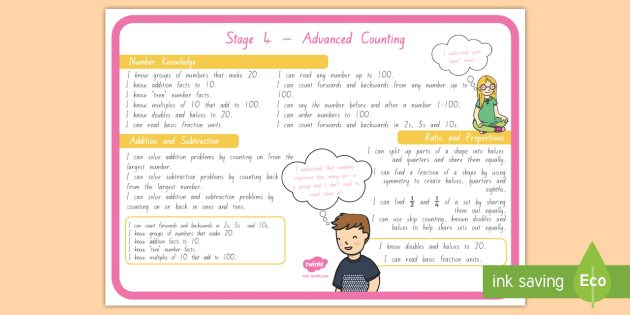 Stage 4 – Advanced Counting
I understand what
"equal" means.
Number Knowledge
I know groups of numbers that make 20.
I know addition facts to 10.
I know "teen" number facts.
I know multiples of 10 that add to 100.
I know doubles and halves to 20.
I can read basic fraction units.
I can read any number up to 100.
I can count forwards and backwards from any number up to
100.
I can say the number before and after a number 1-100.
I can order numbers to 100.
I can count forwards and backwards in 2s, 5s and 10s.
Addition and Subtraction
I can solve addition problems by counting on from the
largest number.
I can solve subtraction problems by counting back
from the largest number.
I can solve addition and subtraction problems by
counting on or back in ones and tens.
I can count forwards and backwards in 2s, 5s and 10s.
I know groups of numbers that make 20.
I know addition facts to 10.
I know "teen" number facts.
I know multiples of 10 that add to 100.
I understand that numbers
represent how many are in
a group and I don't need to
count them all.
Ratio and Proportions
I can split up parts of a shape into halves
and quarters and share them equally.
I can find a fraction of a shape by using
symmetry to create halves, quarters and
eighths.
I can find 1/2 and 1/4 of a set by sharing
them out equally.
I can use skip counting, known doubles and
halves to help share sets out equally.
I know doubles and halves to 20.
I can read basic fraction units.
twinkl
ink saving Eco